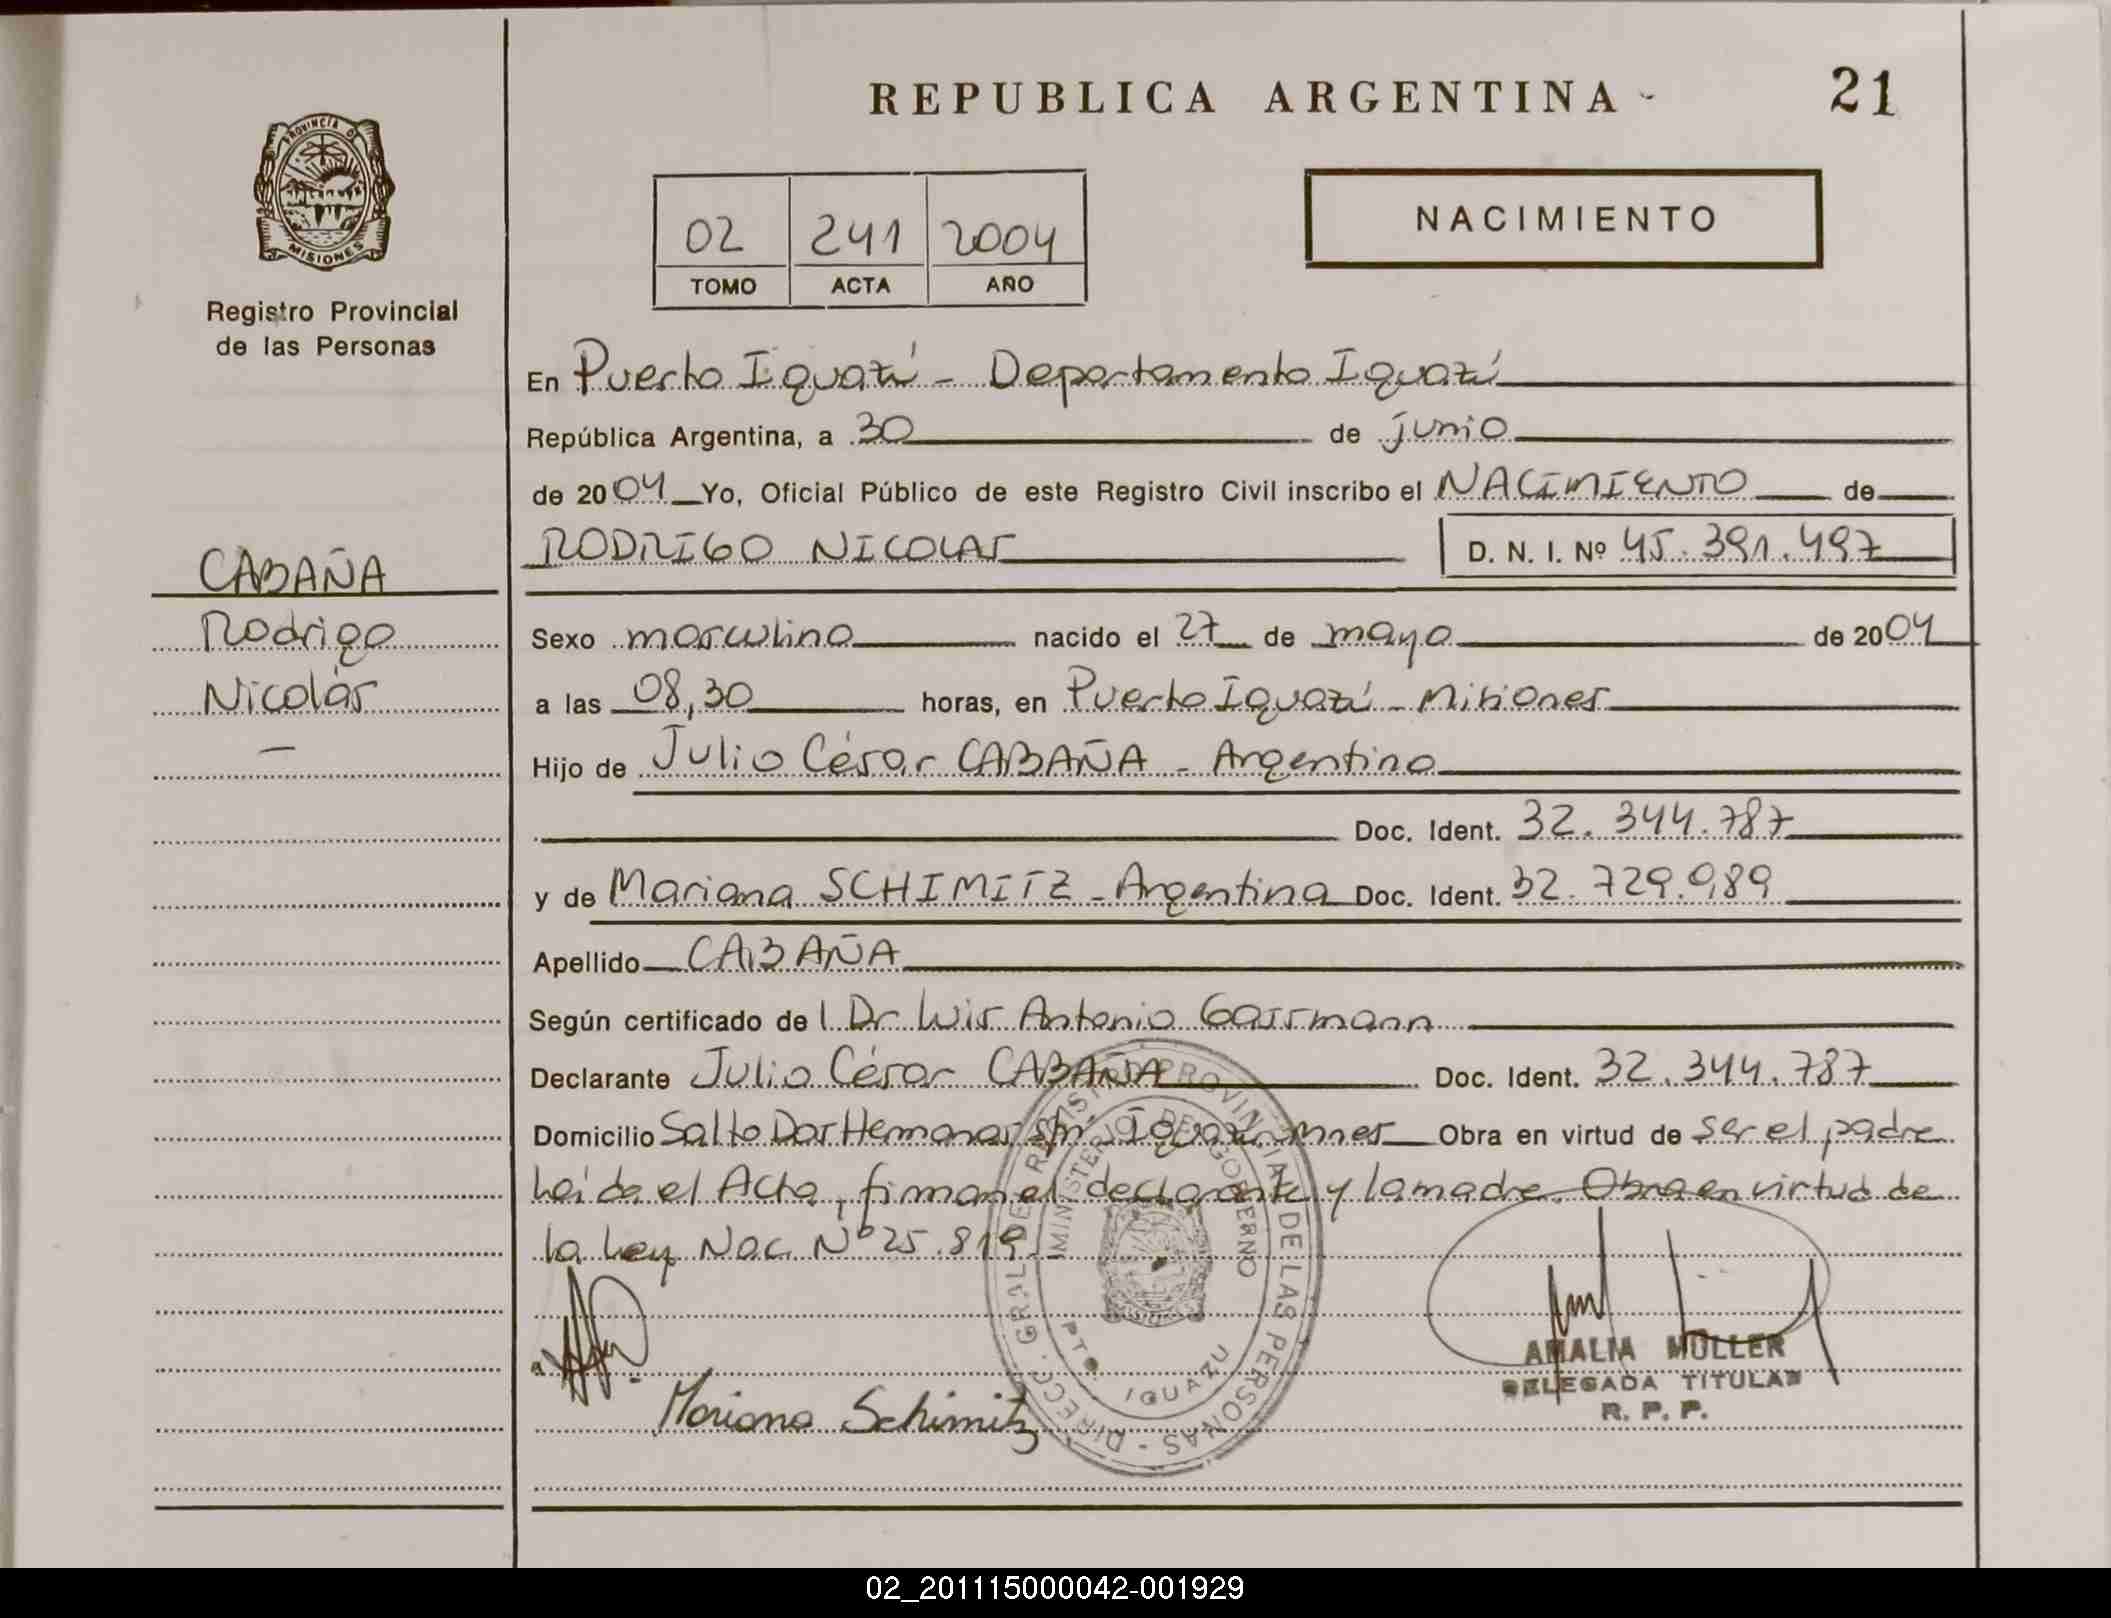 REPUBLICA ARGENTINA
21
PROVINCIA DE
MISIONES
Registro Provincial
de las Personas
02 241 2004
TOMO ACTA AÑO
NACIMIENTO
En Puerto Iguazú - Departamento Iguazú
República Argentina, a 30 de junio
de 2004 Yo, Oficial Público de este Registro Civil inscribo el NACIMIENTO de
RODRIGO NICOLAS D. N. I. Nº 45.391.497
CABAÑA
Rodrigo
Nicolás
—
Sexo masculino nacido el 27 de mayo de 2004
a las 08,30 horas, en Puerto Iguazú - Misiones
Hijo de Julio César CABAÑA - Argentino
Doc. Ident. 32.344.787
y de Mariana SCHIMITZ - Argentina Doc. Ident. 32.729.989
Apellido CABAÑA
Según certificado de l Dr. Luis Antonio Gassmann
Declarante Julio César CABAÑA Doc. Ident. 32.344.787
Domicilio Salto Dos Hermanas s/nº Iguazú Mnes Obra en virtud de ser el padre
Leída el Acta, firman el declarante y la madre. Obra en virtud de
la Ley Nac. Nº 25.819.
DIRECC. GRAL. DE REGISTRO PROVINCIAL DE LAS PERSONAS -
MINISTERIO DE GOBIERNO
PTO. IGUAZU
Mariana Schimitz
AMALIA MÜLLER
DELEGADA TITULAR
R. P. P.
02_201115000042-001929